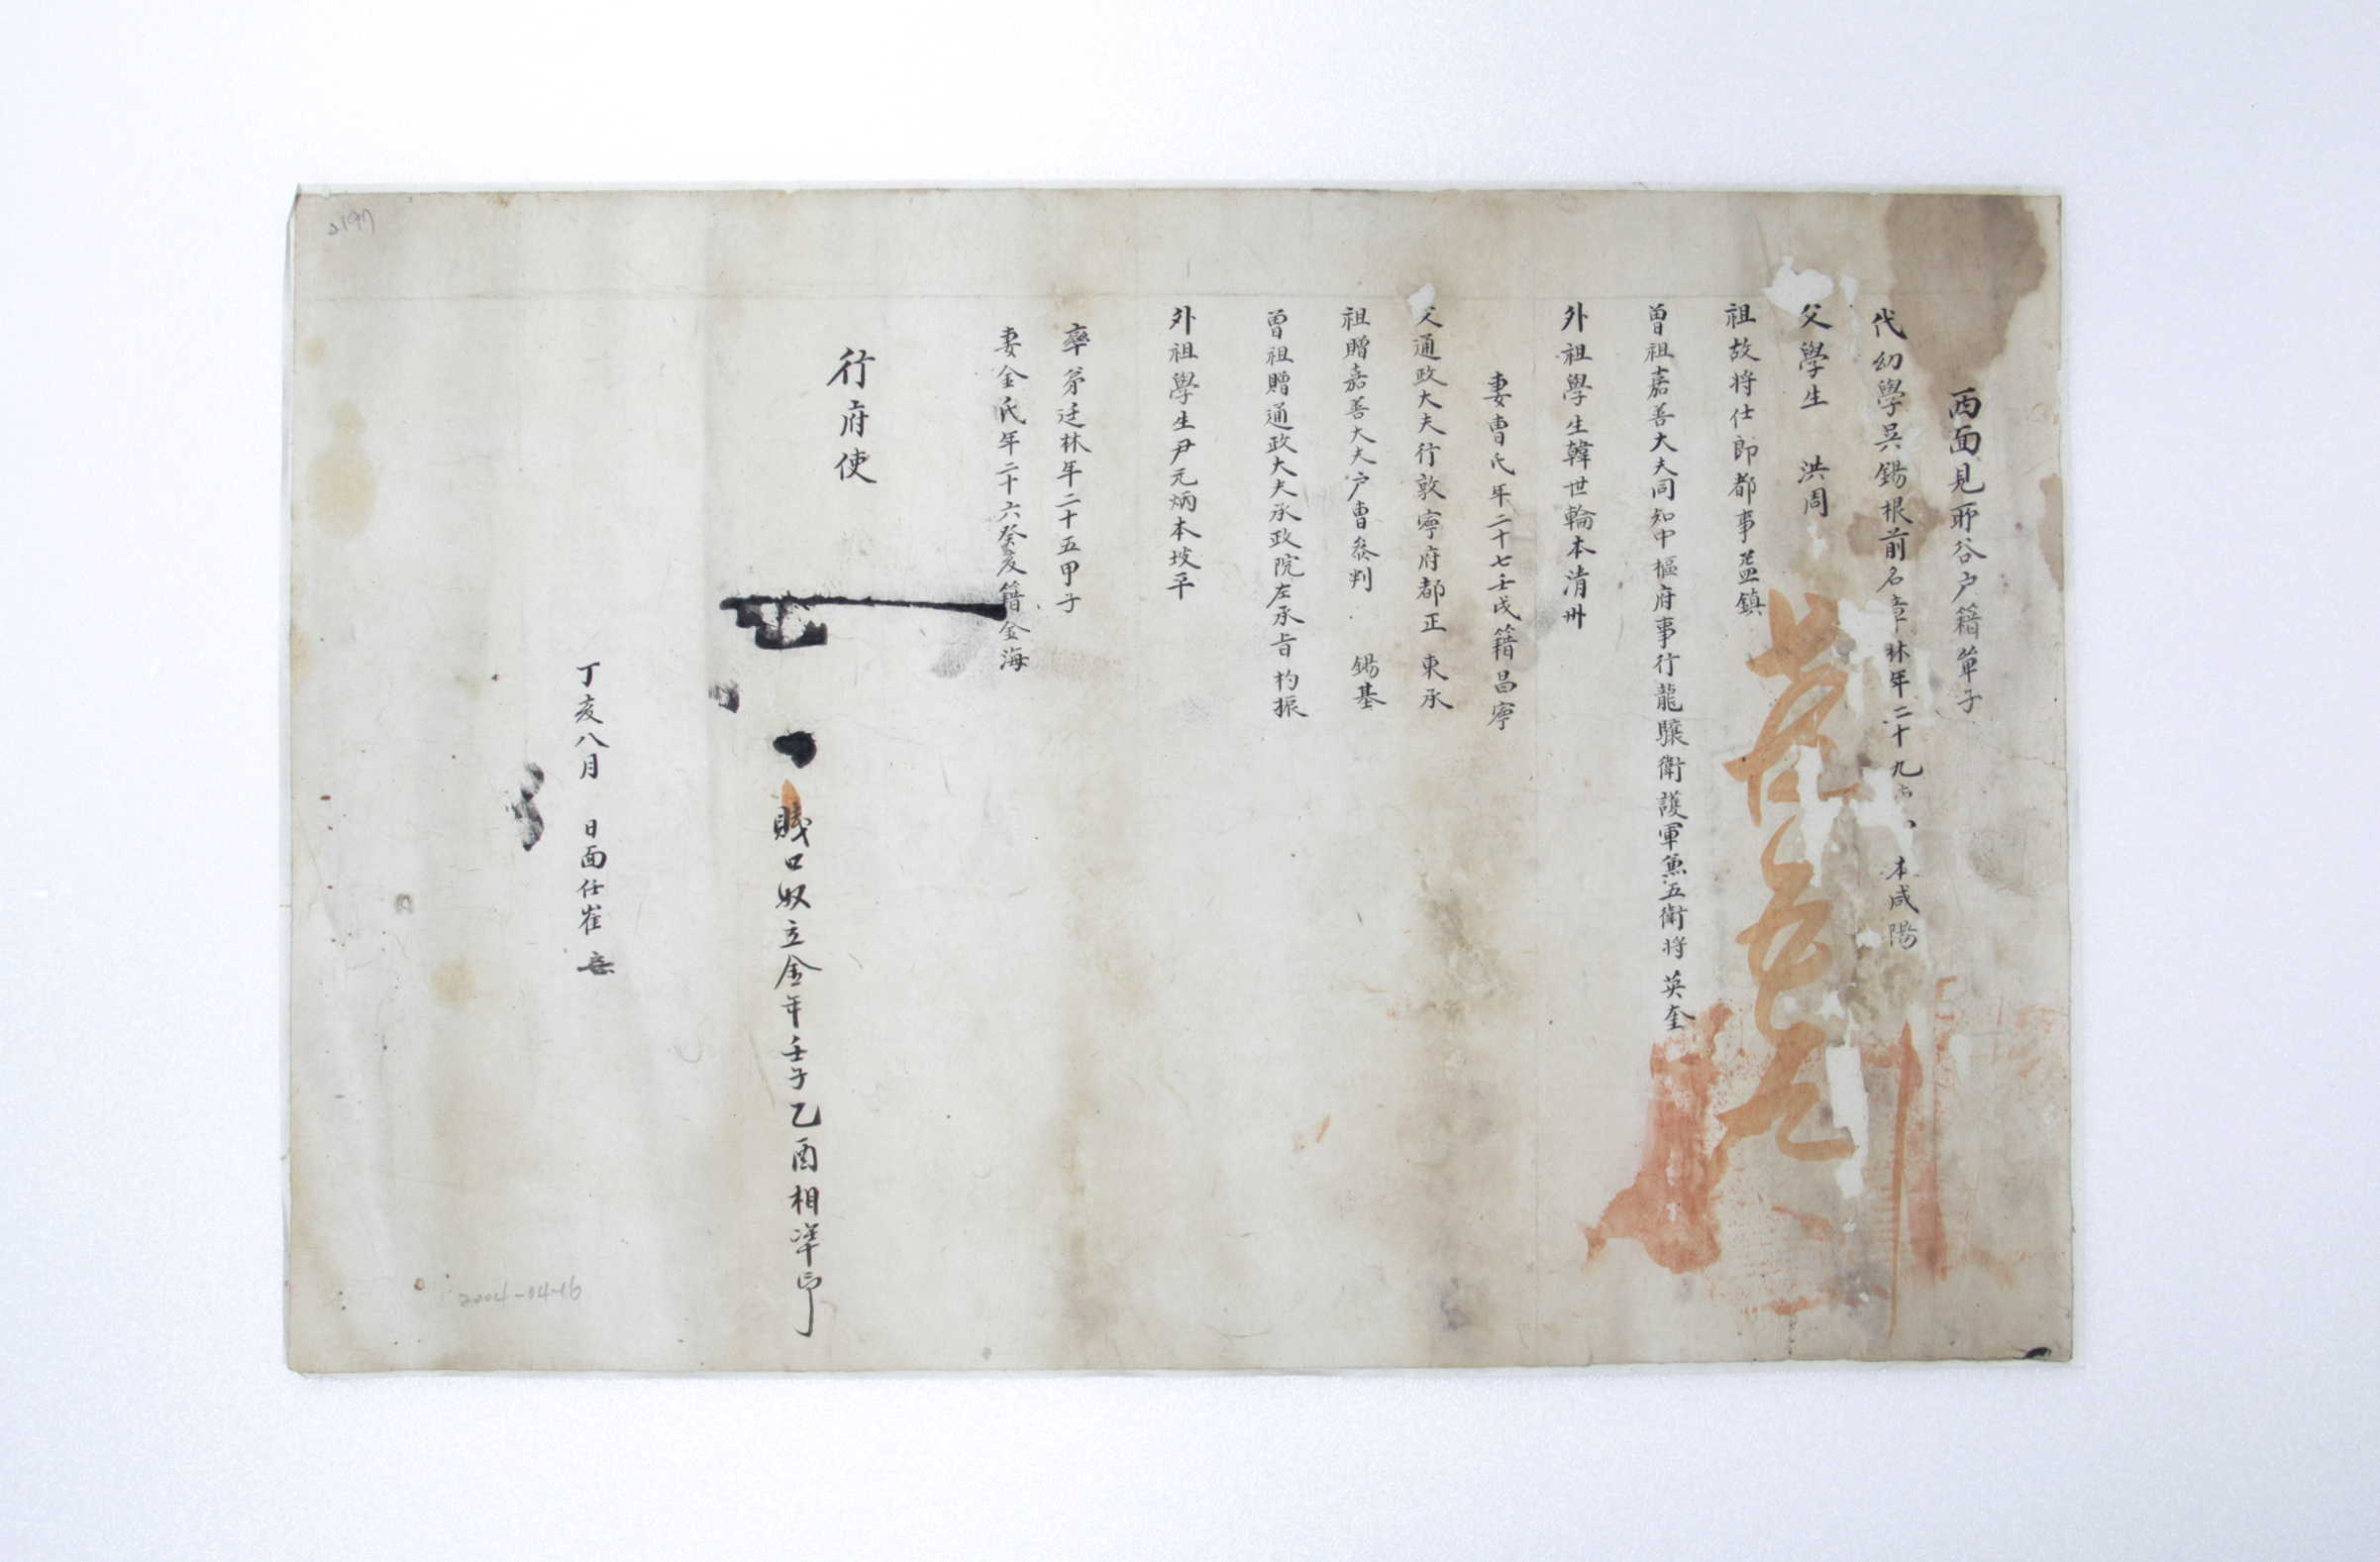 西面見耶谷户籍單子
代幼學吳錫根前名章林年二十九 本咸陽
父學生 洪周
祖故將仕郎都事益鎮
曽祖嘉善大夫同知中樞府事行龍驤衛護軍兼五衛將 英奎
外祖學生韓世輪本清州
妻曺氏年二十七壬戌籍昌寧
父通政大夫行敦寧府都正 東承
祖贈嘉善大夫户曺叅判 錫基
曽祖贈通政大夫承政院左承旨 杓振
外祖學生尹元炳本坡平
率弟廷林年二十五甲子
妻金氏年二十六癸亥籍金海
行府使
賤口奴立金年壬子乙酉相準印
丁亥八月 日面任崔
2004-04-16
2197